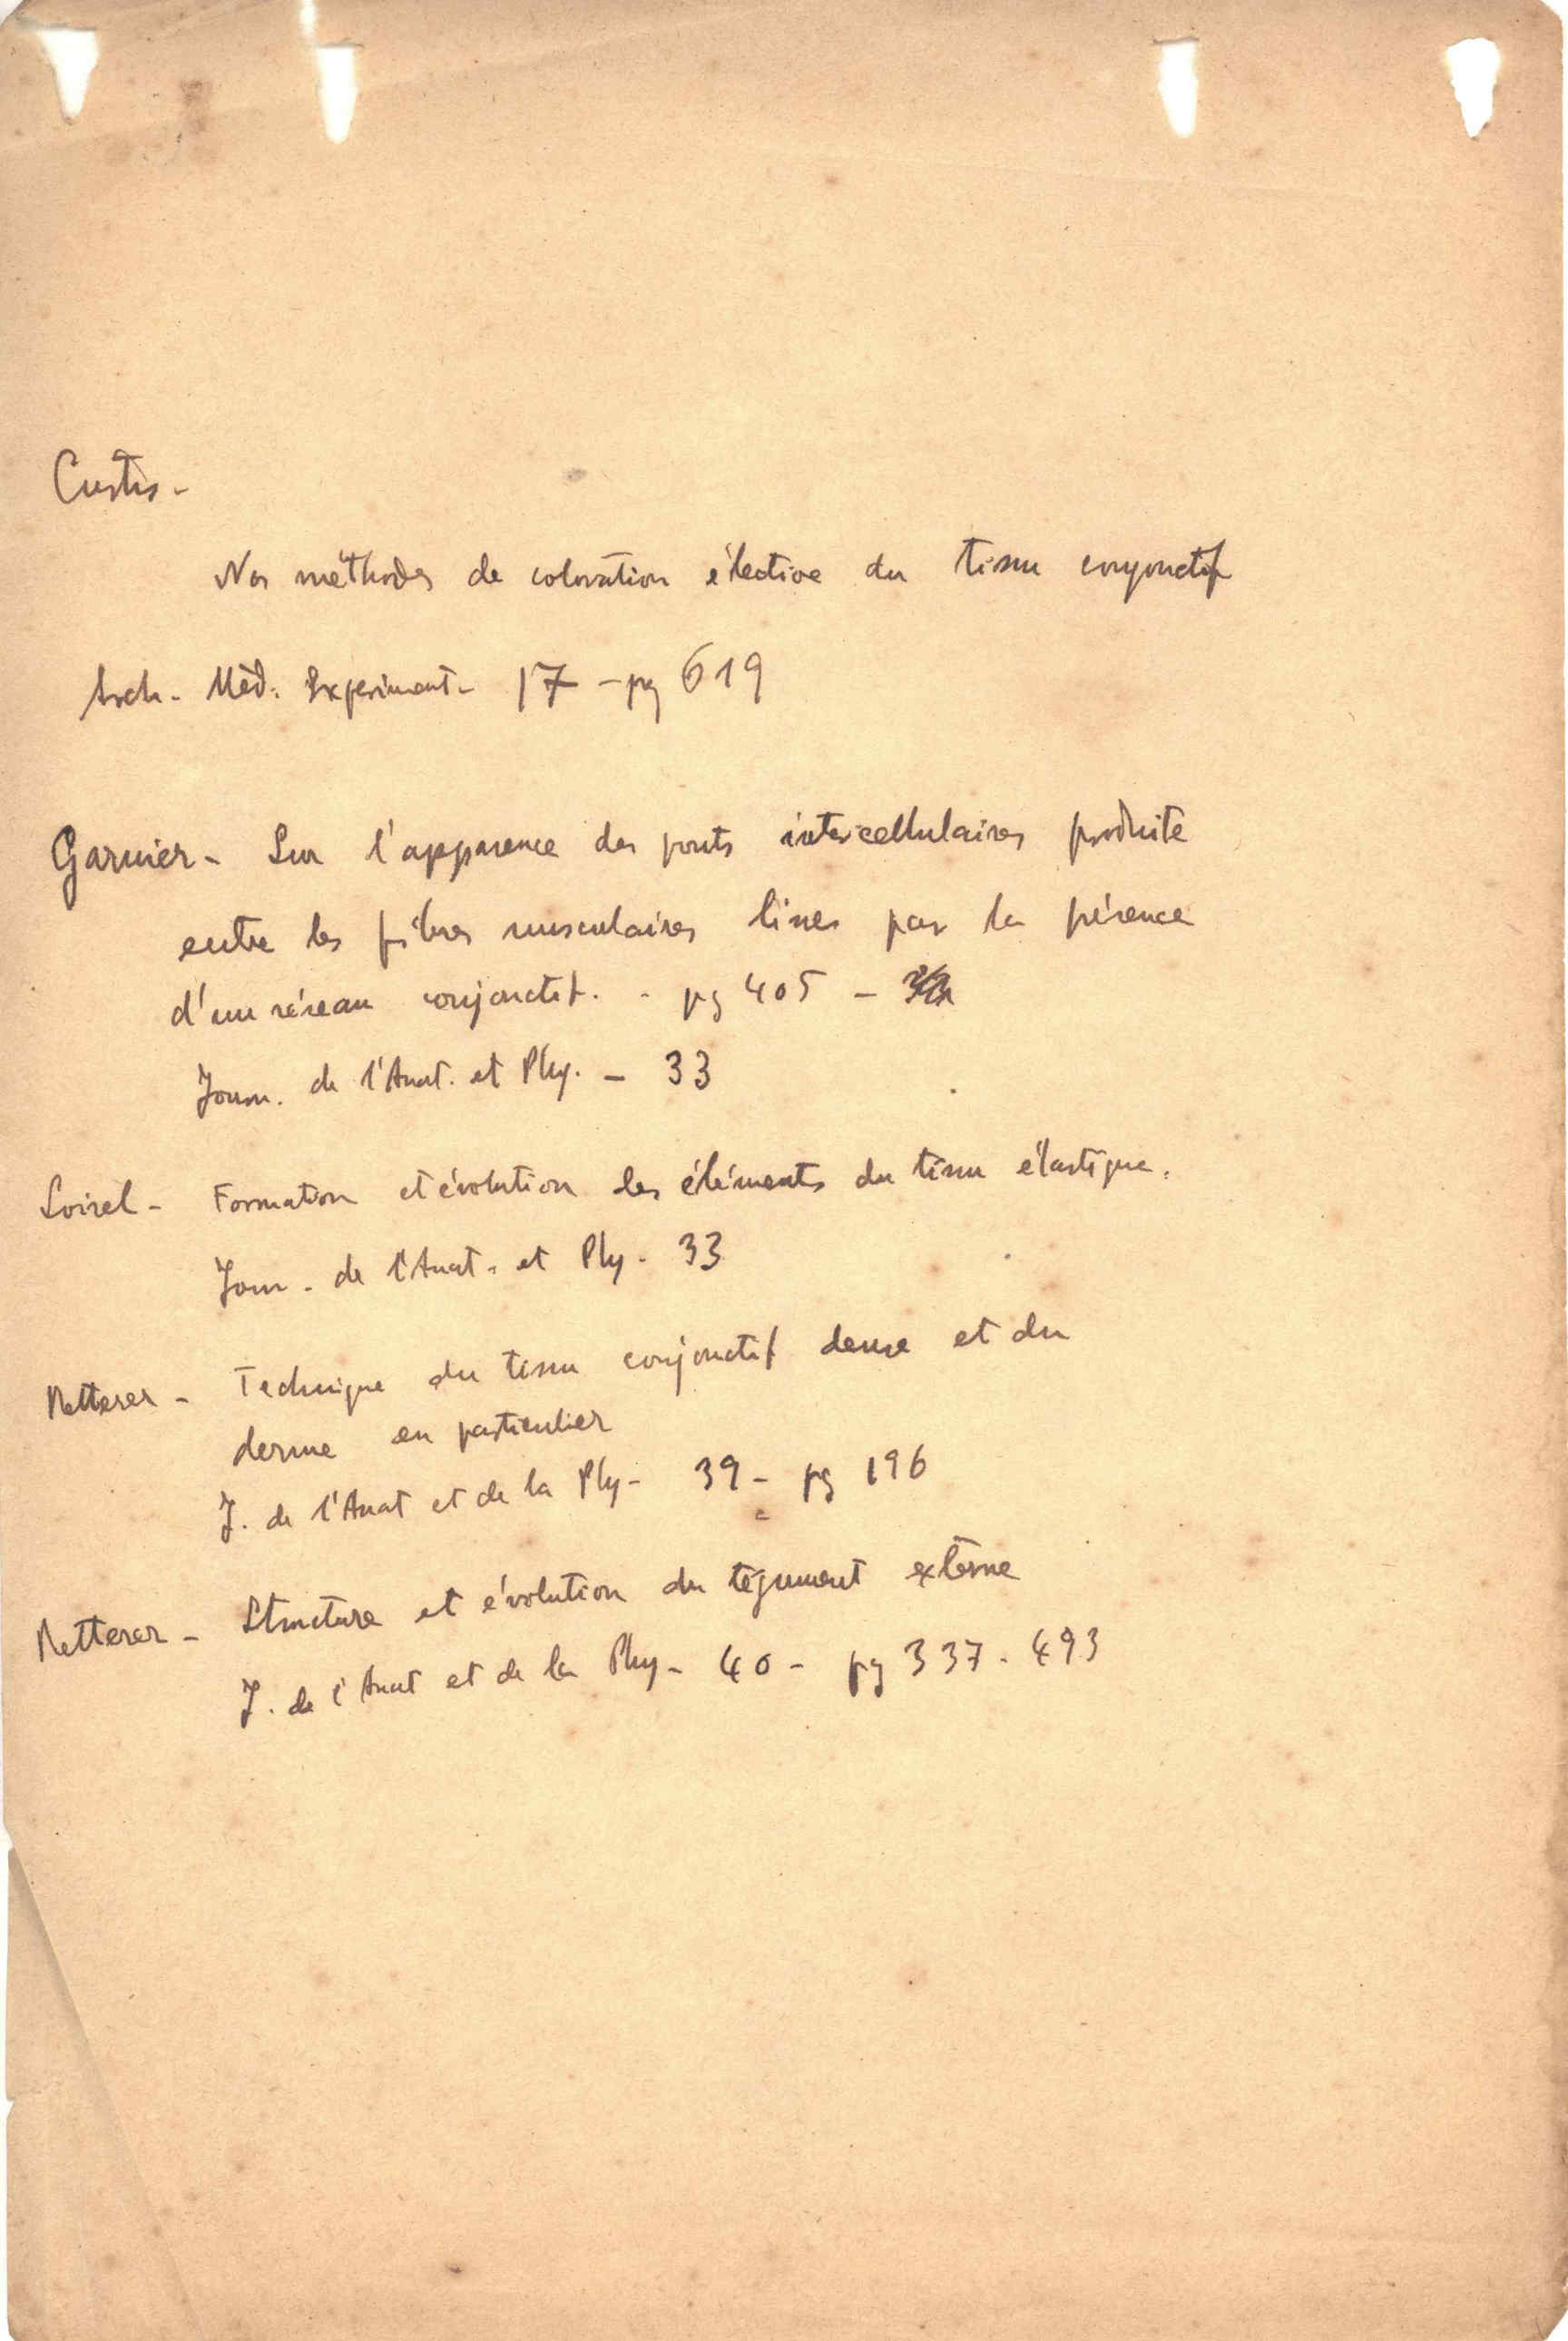 Curtis -
Nos méthodes de coloration élective du tissu conjonctif
Arch - Méd. Experiment - 17 - pg 619
Garnier - Sur l'apparence des ponts intercellulaires produite
entre les fibres musculaires lisses par la présence
d'un réseau conjonctif. - pg 405 -
Journ. de l'Anat. et Phy. - 33
Loisel - Formation et évolution des éléments du tissu élastique.
Jour - de l'Anat - et Phy - 33
Retterer - Technique du tissu conjonctif dense et du
derme en particulier
J. de l'Anat et de la Phy - 39 - pg 196
Retterer - Structure et évolution du tégument externe
J. de l'Anat et de la Phy - 40 - pg 337 - 493